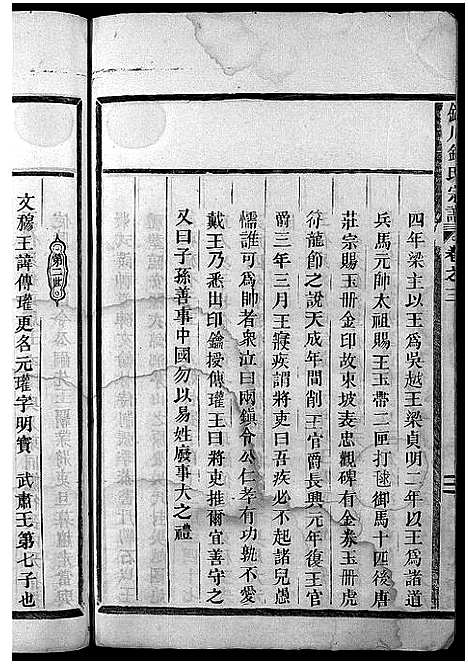 錢氏宗譜 卷之三
四年梁主以王爲吳越王梁貞明二年以王爲諸道
兵馬元帥太祖賜王玉帶二匣打毬御馬十四後唐
莊宗賜玉册金印故東坡表忠觀碑有金券玉册虎
符龍節之說天成年間削王官爵長興元年復王官
爵三年三月王寢疾謂將吏曰吾疾必不起諸兒愚
懦誰可爲帥者衆泣曰兩鎮令公仁孝有功孰不愛
戴王乃悉出印鑰授傳瓘王曰將吏推爾宜善守之
又曰子孫善事中國勿以易姓廢事大之禮
第二世
文穆王諱傳瓘更名元瓘字明寶 武肅王第七子也